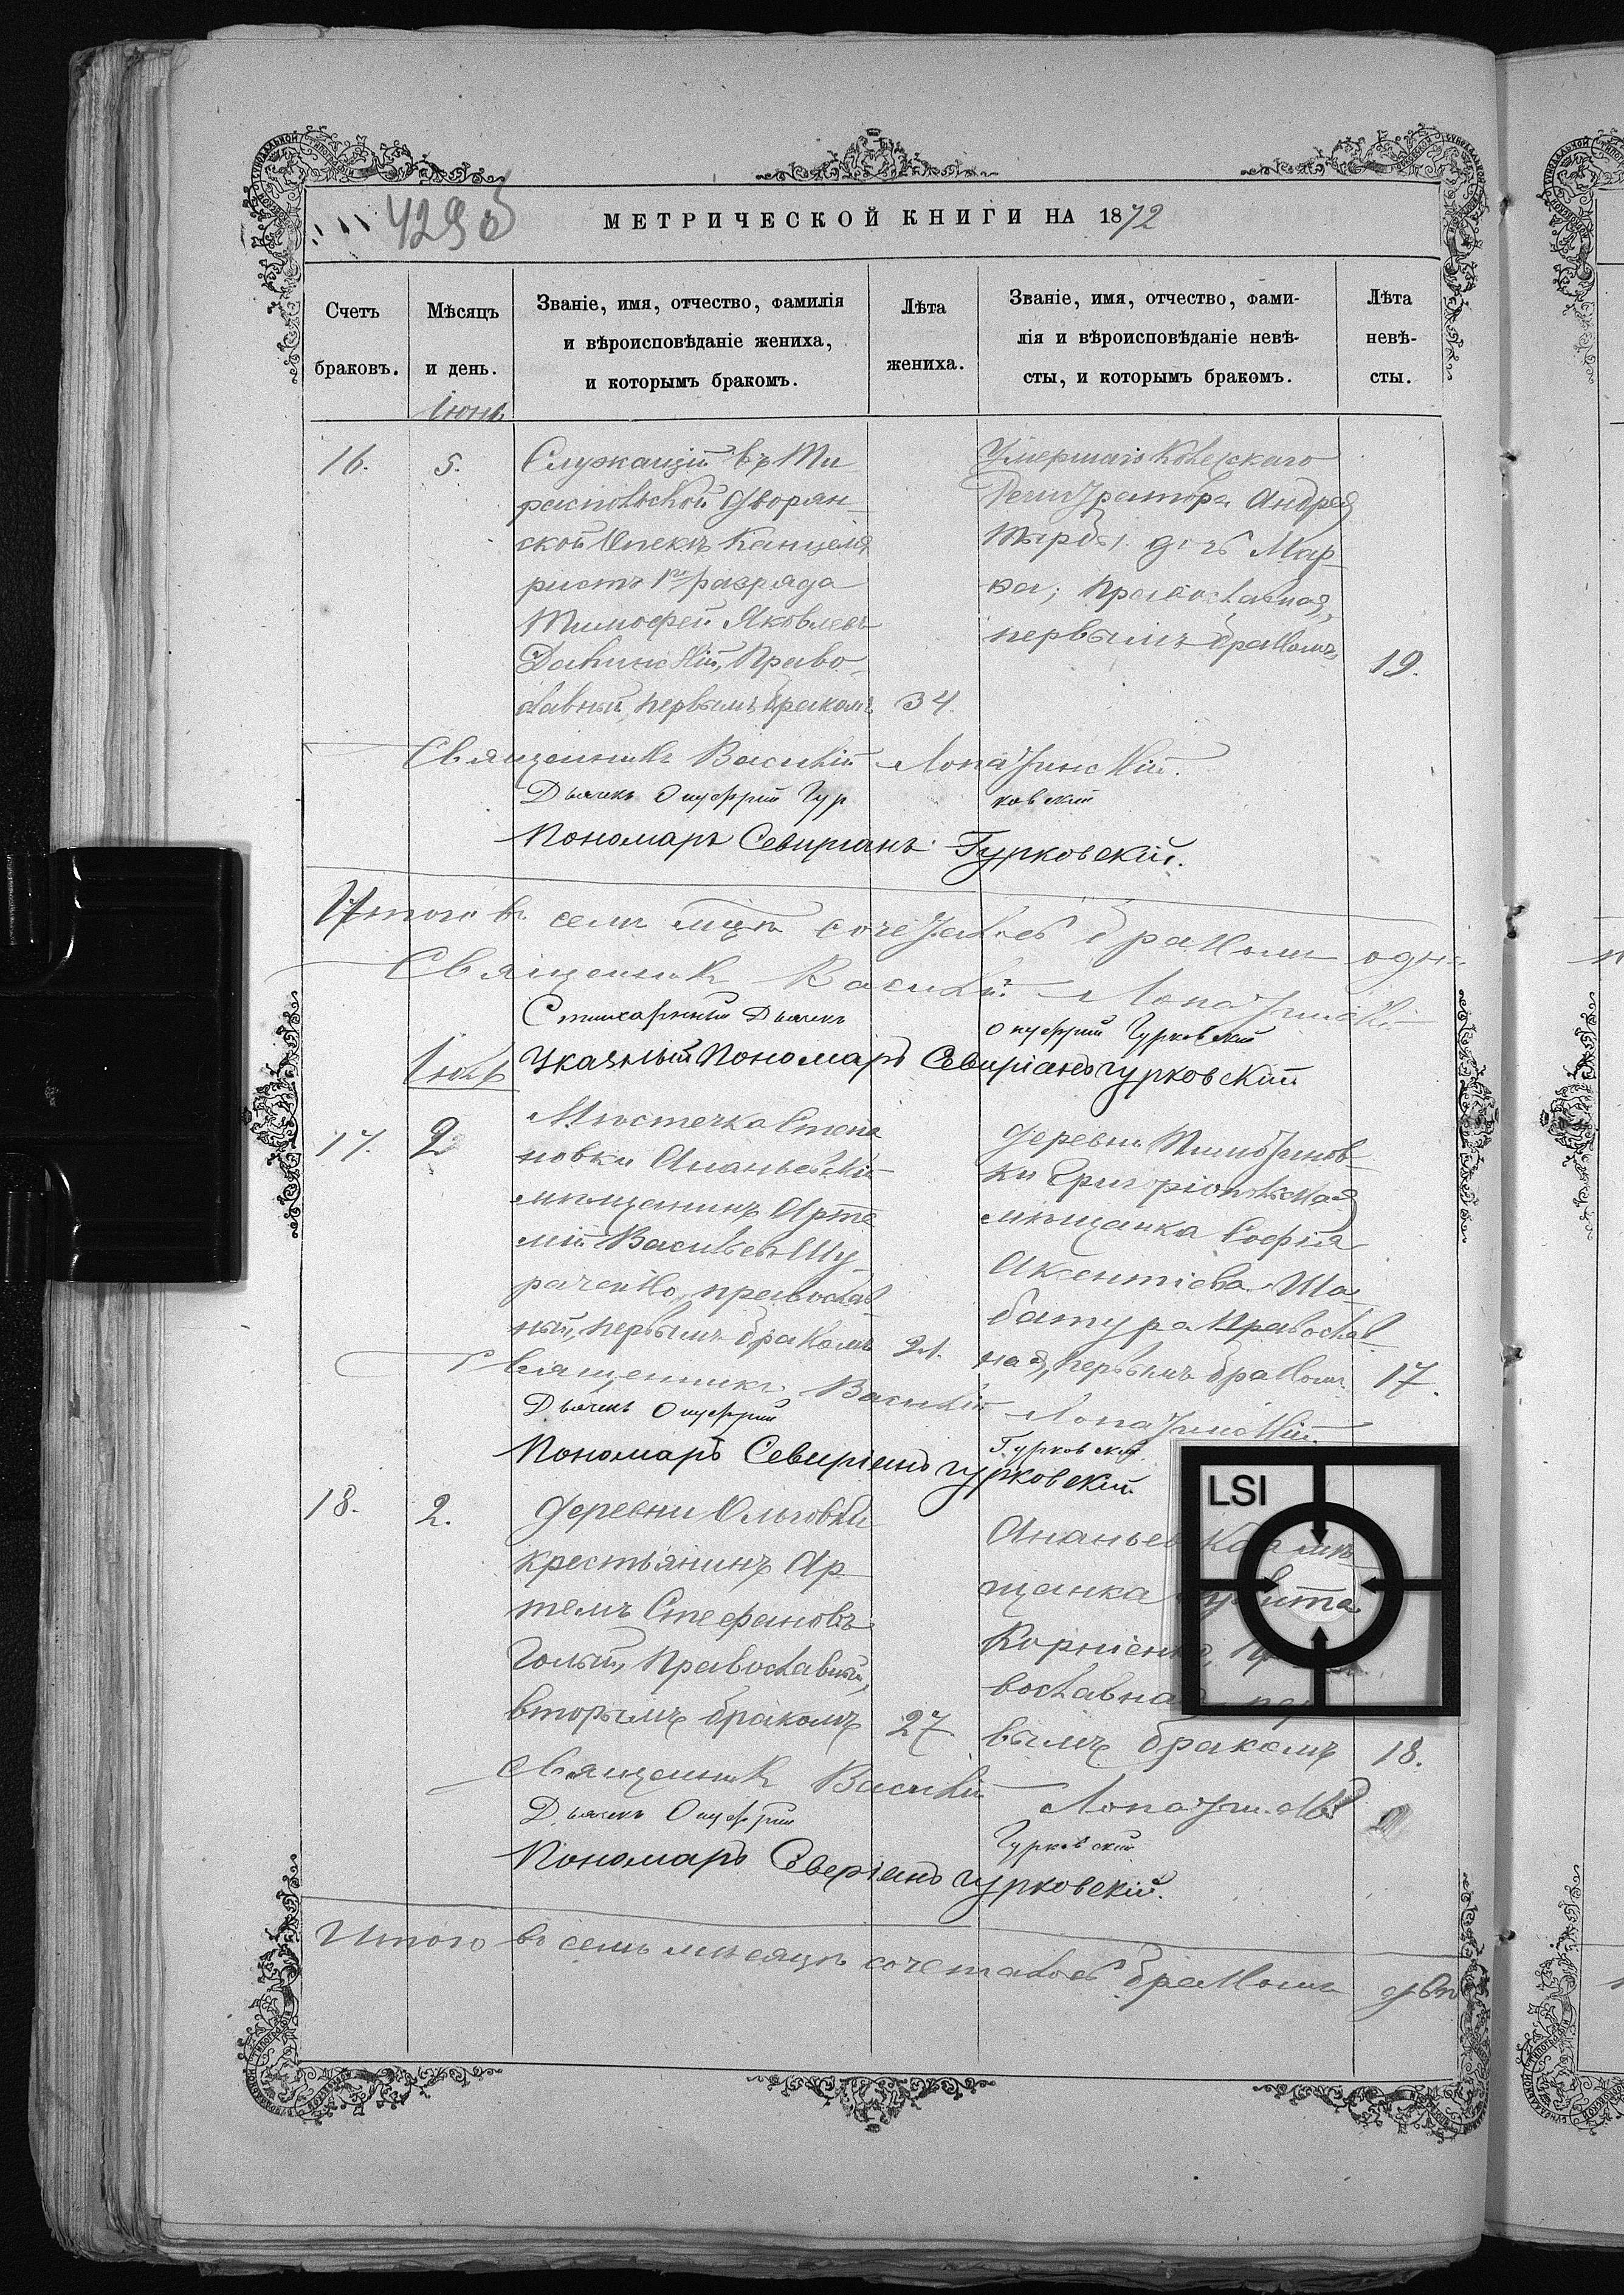 429 об
МЕТРИЧЕСКОЙ КНИГИ НА 1872
Счетъ браковъ.
Мѣсяцъ и день.
Званіе, имя, отчество, фамилія
и вѣроисповѣданіе жениха,
и которымъ бракомъ.
Лѣта жениха.
Званіе, имя, отчество, фами-
лія и вѣроисповѣданіе невѣ-
сты, и которымъ бракомъ.
Лѣта невѣ-
сты.
Іюнь
16.
5.
Служащій въ Ти
распольской Дворян-
ской Опекѣ Канцеля
ристъ 1го разряда
Тимофей Яковлевъ
Право-
славный, первымъ бракомъ
34.
Умершаго Колежскаго
Регистратора Андрея
дочь Мар-
ѳа, православная,
первымъ бракомъ
19.
Священникъ Василій Лопатинскій.
Дьячекъ Онуфрій Гурковскій
Пономарь Севиріанъ Гурковскій.
Итого въ семъ мцѣ сочеталось бракомъ одна
Священникъ Василій Лопатинскій
Стихарный Дьячекъ Онуфрій Гурковскій
Указный Пономарь Севиріанъ Гурковскій
Іюль
17.
2
Мѣстечка Степа
новки Ананьевскій
мѣщанинъ Арте
мій Васильевъ Шу-
раченко, православ
ный, первымъ бракомъ
21.
Деревни
ки Григоріопольская
мѣщанка Софія
Аксентіева Ша-
батура православ
ная, первымъ бракомъ
17.
Священникъ Василій Лопатинскій
Дьячекъ Онуфрій Гурковскій
Пономарь Севиріанъ Гурковскій
18.
2.
Деревни Ольговки
крестьянинъ Ар
темъ Стефановъ
Голый, Православный,
вторымъ бракомъ
27
Ананьевская мѣ
щанка
Корніенко, Пра
вославная, пер
вымъ бракомъ
18.
LSI
Священникъ Василій Лопатинскій
Дьячекъ Онуфрій Гурковскій
Пономарь Северіанъ Гурковскій.
Итого въ семъ мѣсяцѣ сочеталось бракомъ двѣ